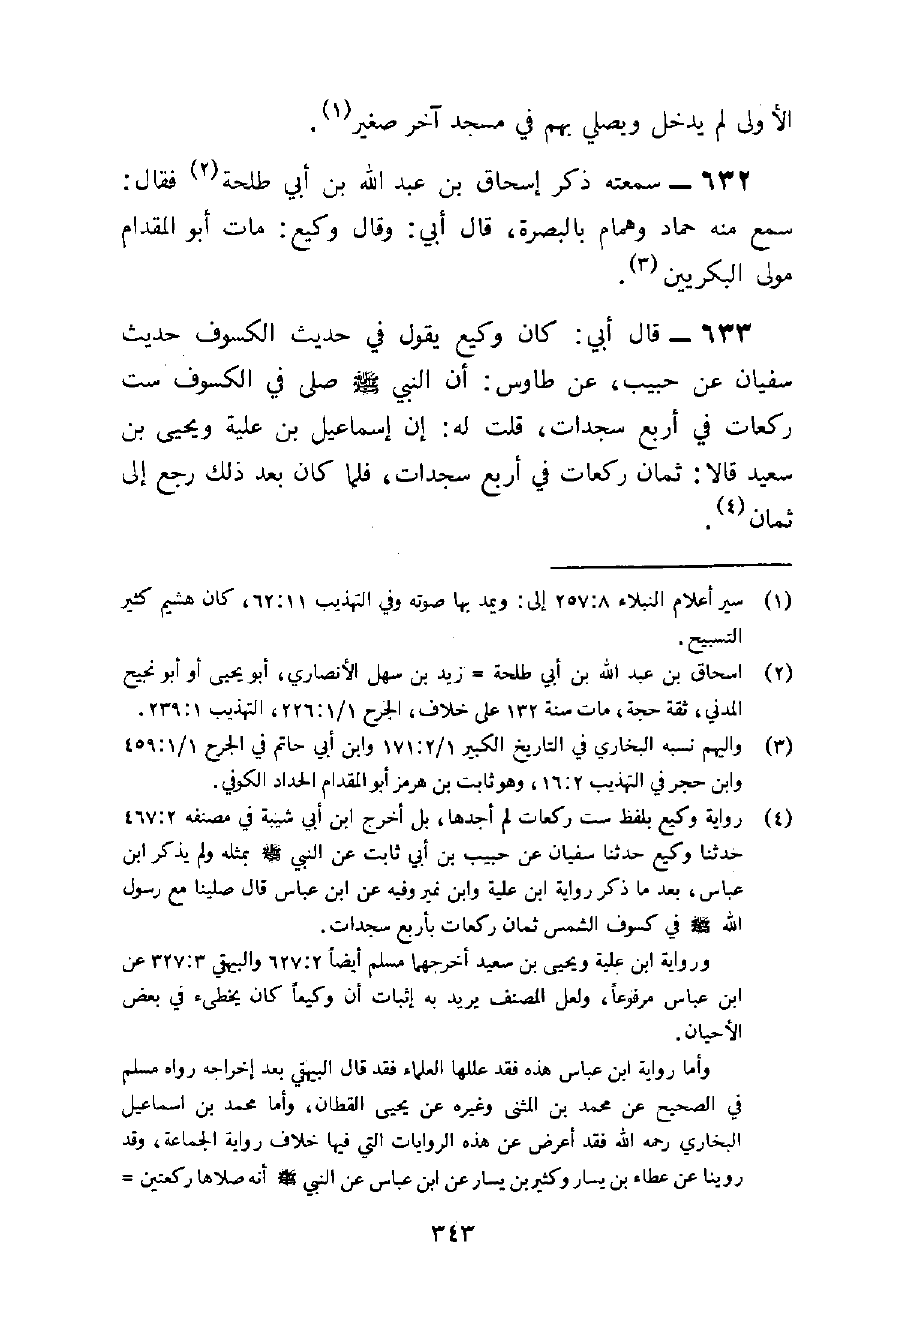 الأولى لم يدخل ويصلي بهم في مسجد آخر صغير(١).
٦٣٢ ــ سمعته ذكر إسحاق بن عبد الله بن أبي طلحة(٢) فقال:
سمع منه حماد وهمام بالبصرة، قال أبي: وقال وكيع: مات أبو المقدام
مولى البكريين(٣).
٦٣٣ ــ قال أبي: كان وكيع يقول في حديث الكسوف حديث
سفيان عن حبيب، عن طاوس: أن النبي ﷺ صلى في الكسوف ست
ركعات في أربع سجدات، قلت له: إن إسماعيل بن علية ويحيى بن
سعيد قالا: ثمان ركعات في أربع سجدات، فلما كان بعد ذلك رجع إلى
ثمان(٤).
(١) سير أعلام النبلاء ٢٥٧:٨ إلى: ويمد بها صوته وفي التهذيب ٦٢:١١، كان هشيم كثير
التسبيح.
(٢) اسحاق بن عبد الله بن أبي طلحة = زيد بن سهل الأنصاري، أبو يحيى أو أبو نجيح
المدني، ثقة حجة، مات سنة ١٣٢ على خلاف، الجرح ٢٢٦:١/١، التهذيب ٢٣٩:١.
(٣) واليهم نسبه البخاري في التاريخ الكبير ١٧١:٢/١ وابن أبي حاتم في الجرح ٤٥٩:١/١
وابن حجر في التهذيب ١٦:٢، وهو ثابت بن هرمز أبو المقدام الحداد الكوفي.
(٤) رواية وكيع بلفظ ست ركعات لم أجدها، بل أخرج ابن أبي شيبة في مصنفه ٤٦٧:٢
حدثنا وكيع حدثنا سفيان عن حبيب بن أبي ثابت عن النبي ﷺ بمثله ولم يذكر ابن
عباس، بعد ما ذكر رواية ابن علية وابن نمير وفيه عن ابن عباس قال صلينا مع رسول
الله ﷺ في كسوف الشمس ثمان ركعات بأربع سجدات.
ورواية ابن علية ويحيى بن سعيد أخرجها مسلم أيضاً ٦٢٧:٢ والبيهقي ٣٢٧:٣ عن
ابن عباس مرفوعاً، ولعل المصنف يريد به إثبات أن وكيعاً كان يخطىء في بعض
الأحيان.
وأما رواية ابن عباس هذه فقد عللها العلماء فقد قال البيهقي بعد إخراجه رواه مسلم
في الصحيح عن محمد بن المثنى وغيره عن يحيى القطان، وأما محمد بن اسماعيل
البخاري رحمه الله فقد أعرض عن هذه الروايات التي فيها خلاف رواية الجماعة، وقد
روينا عن عطاء بن يسار وكثير بن يسار عن ابن عباس عن النبي ﷺ أنه صلاها ركعتين =
٣٤٣